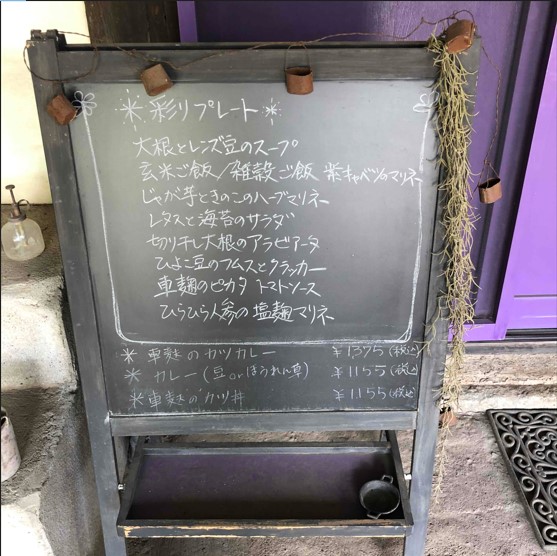 彩りプレート
大根とレンズ豆のスープ
玄米ご飯/雑穀ご飯 紫キャベツのマリネ
じゃが芋ときのこのハーブマリネ
レタスと海苔のサラダ
切り干し大根のアラビアータ
ひよこ豆のフムスとクラッカー
車麩のピカタ トマトソース
ひらひら人参の塩麹マリネ
※ 車麩のカツカレー ¥1375(税込)
※ カレー(豆orほうれん草) ¥1155(税込)
※車麩のカツ丼 ¥1155(税込)